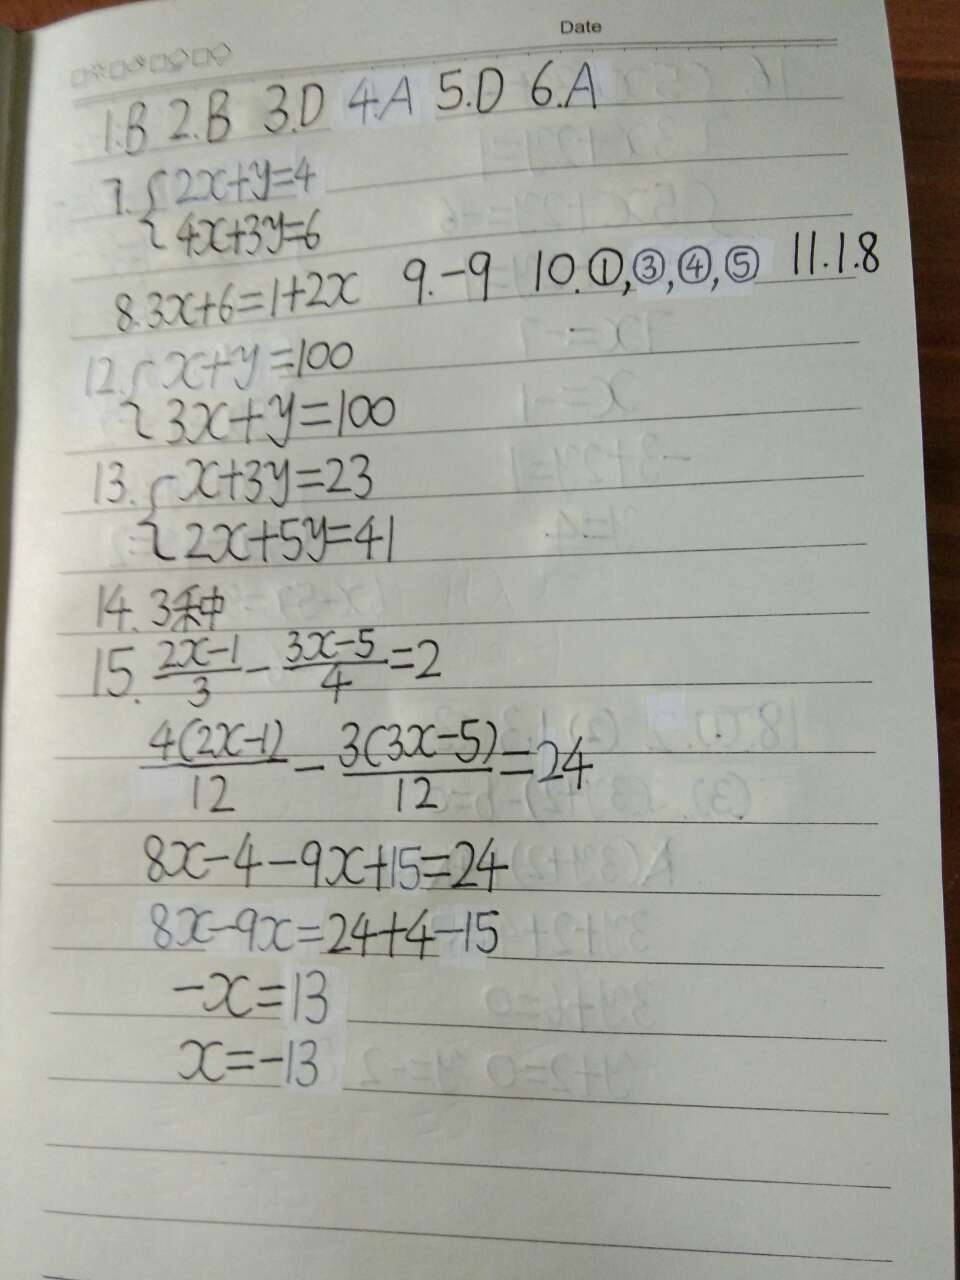 Date
1.B 2.B 3.D 4.A 5.D 6.A
7. { 2x+y=4
4x+3y=6
8.3x+6=1+2x 9.-9 10.①,③,④,⑤ 11.1.8
12. { x+y=100
3x+y=100
13. { x+3y=23
2x+5y=41
14. 3种
15. (2x-1)/3 - (3x-5)/4 =2
4(2x-1)/12 - 3(3x-5)/12 =24
8x-4-9x+15=24
8x-9x=24+4-15
-x=13
x=-13